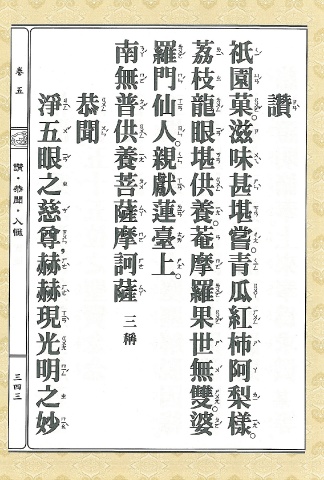 讚
祇園菓。滋味甚堪嘗。青瓜紅柿阿梨樣。
荔枝龍眼堪供養。菴摩羅果世無雙。婆
羅門仙人。親獻蓮臺上。
南無普供養菩薩摩訶薩 三稱
恭聞
淨五眼之慈尊，赫赫現光明之妙
卷五
讚・恭聞・入懺
三四三